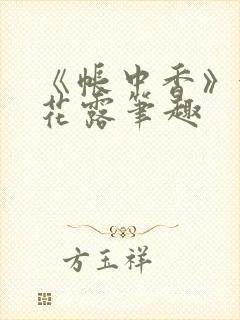 《帐中香》
花露笔趣
方玉祥